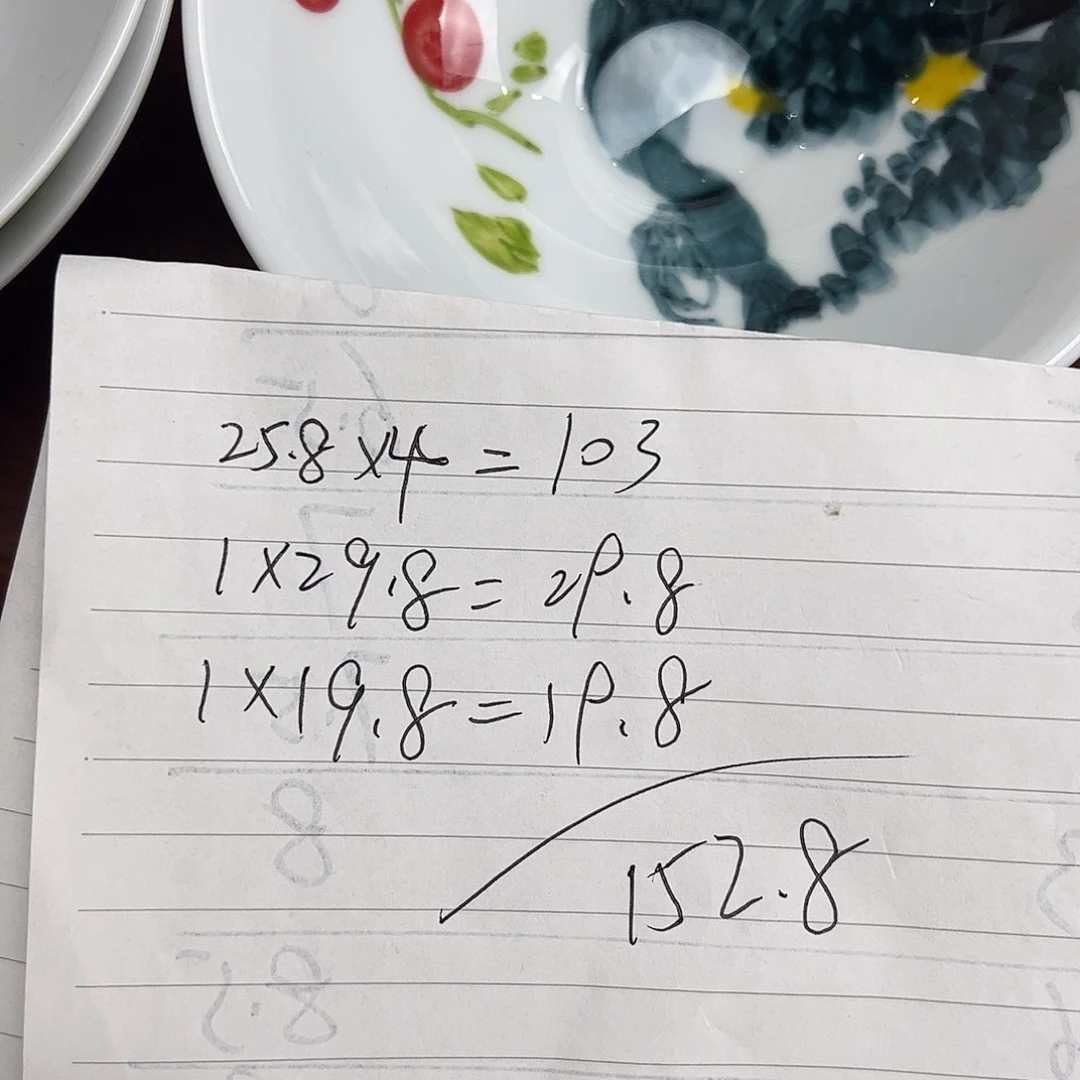 25.8×4=103
1×29.8=29.8
1×19.8=19.8
152.8